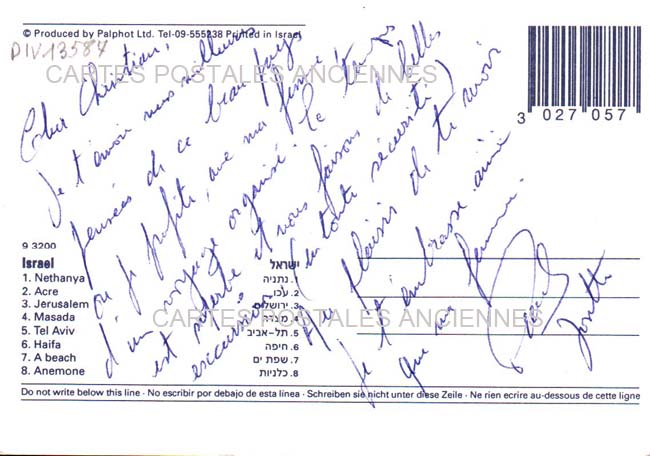 © Produced by Palphot Ltd. Tel-09-555238 Printed in Israel
DIV13584
CARTES POSTALES ANCIENNES
3 027 057
Cher Christian,
Je t'avoir nos meilleures
pensées de ce beau pays
où je profite, avec ma femme
d'un voyage organisé. Le temps
est superbe et nous faisons de belles
excursions (en toute sécurité)
Au plaisir de te revoir
Je t'embrasse ainsi
que ma femme.
Josette
9 3200
Israel ישראל
1. Nethanya 1. נתניה
2. Acre 2. עכו
3. Jerusalem 3. ירושלים
4. Masada 4. מצדה
5. Tel Aviv 5. תל-אביב
6. Haifa 6. חיפה
7. A beach 7. שפת ים
8. Anemone 8. כלניות
CARTES POSTALES ANCIENNES
Do not write below this line - No escribir por debajo de esta línea - Schreiben sie nicht unter diese Zeile - Ne rien ecrire au-dessous de cette ligne